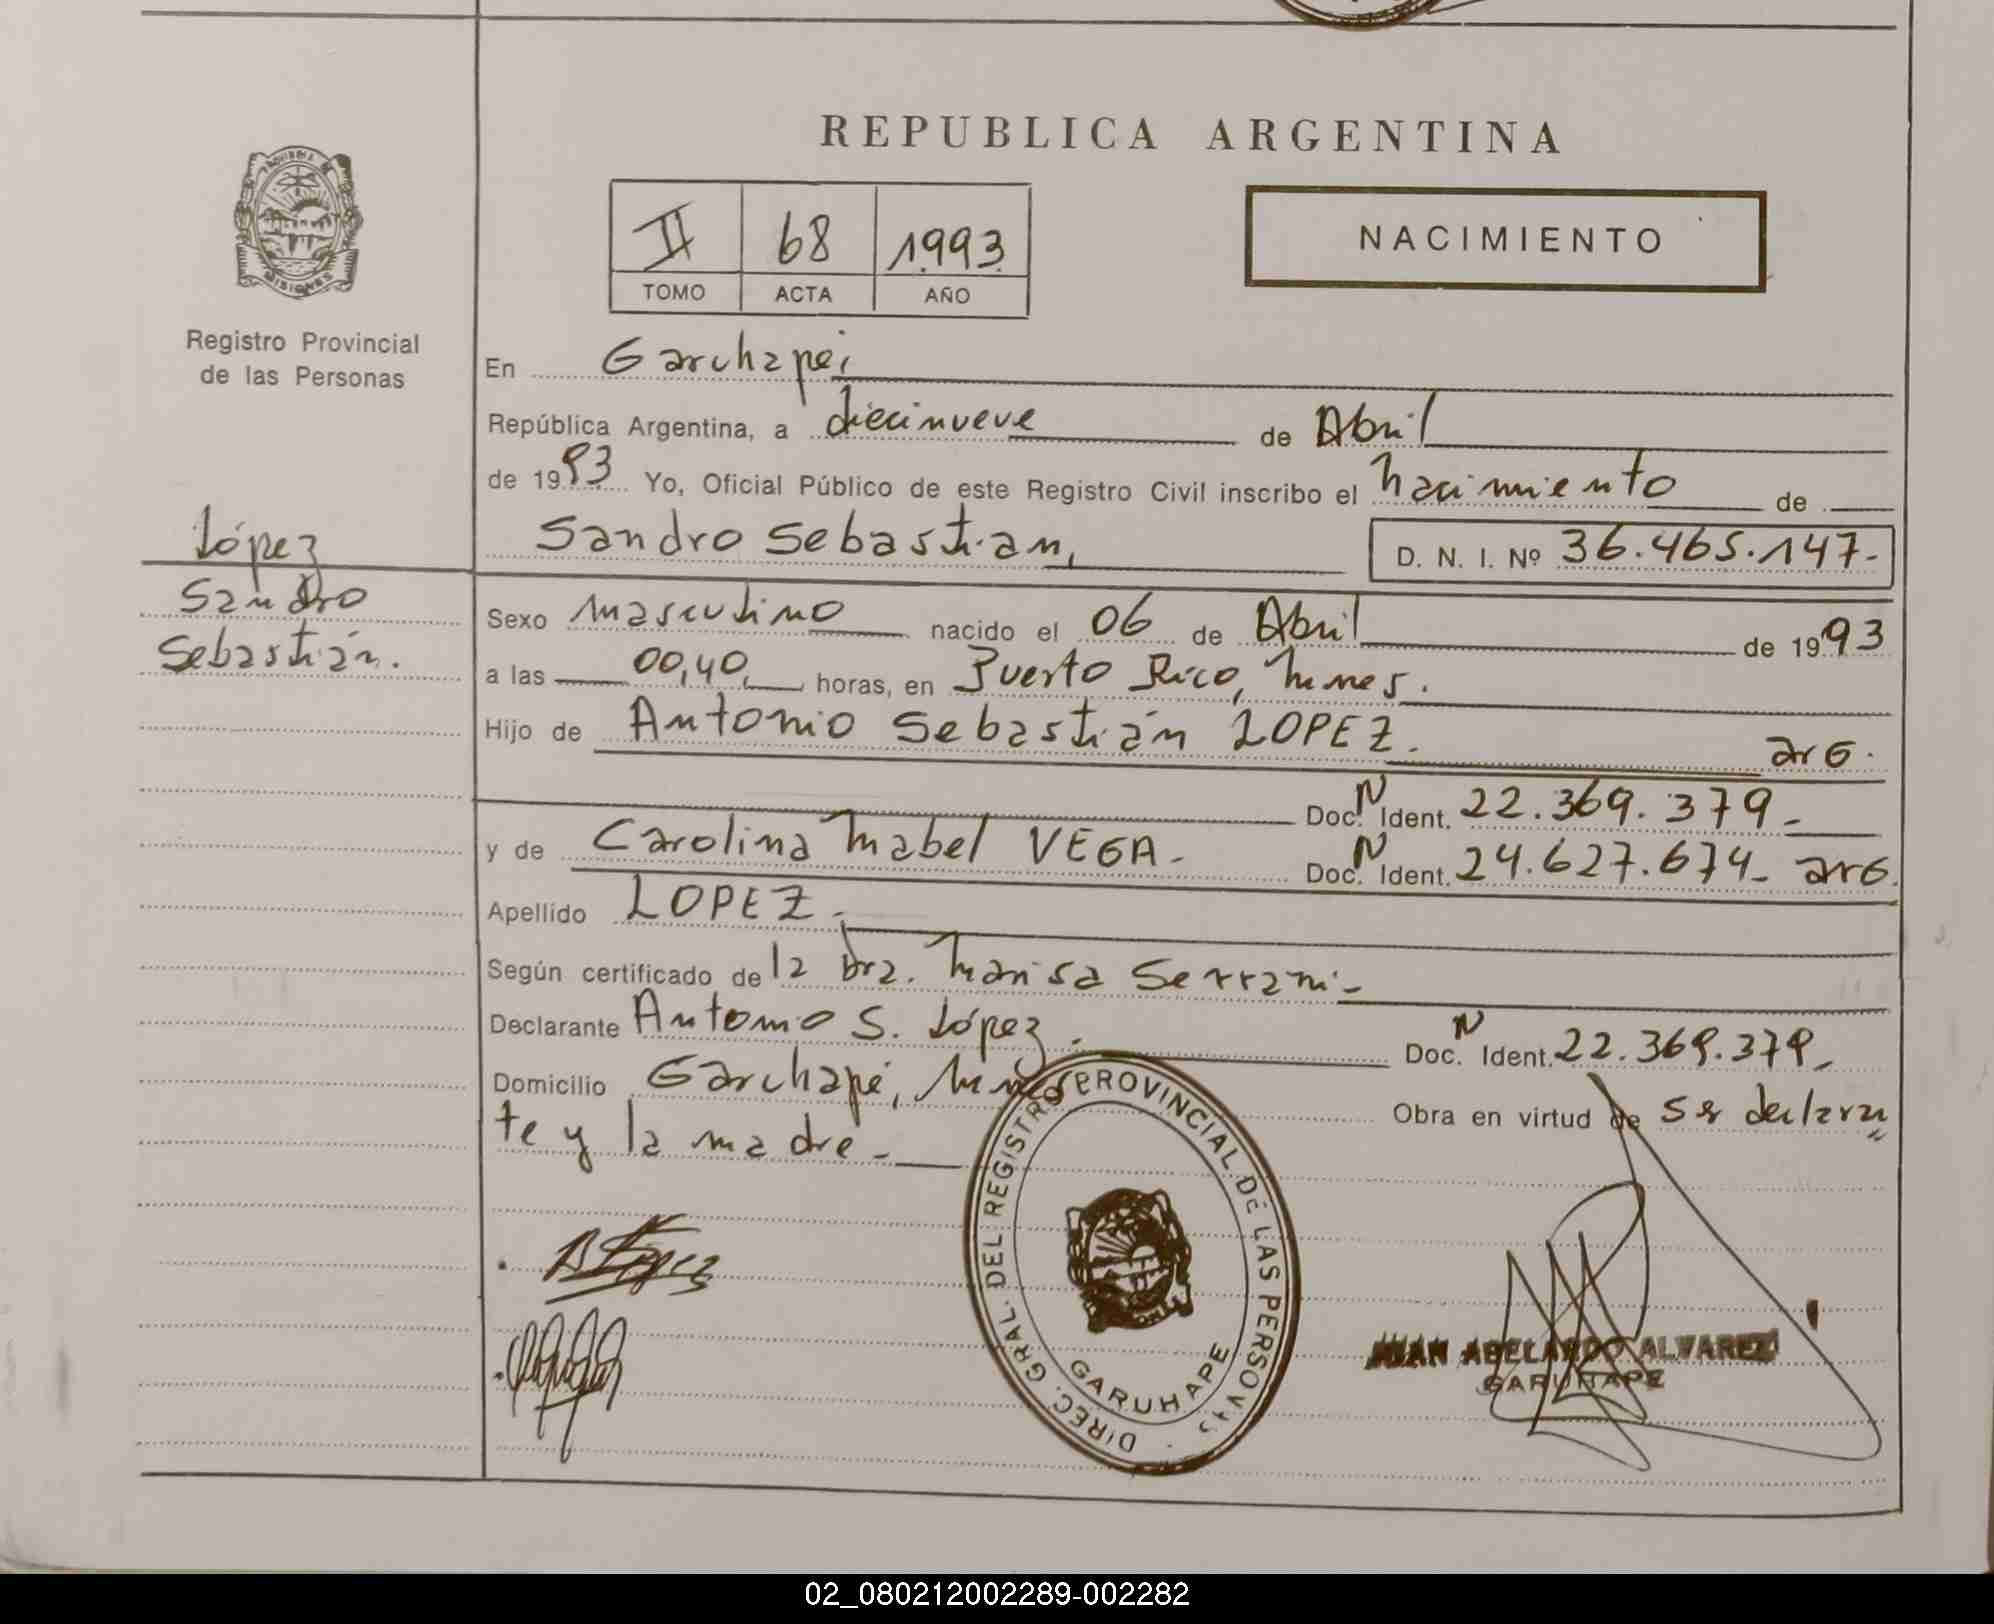 REPUBLICA ARGENTINA
PROVINCIA DE
MISIONES
Registro Provincial
de las Personas
II 68 1.993
TOMO ACTA AÑO
NACIMIENTO
En Garuhapé,
República Argentina, a diecinueve de Abril
de 1993 Yo, Oficial Público de este Registro Civil inscribo el nacimiento de
López
Sandro
Sebastián.
Sandro Sebastian, D. N. I. Nº 36.465.147-
Sexo masculino nacido el 06 de Abril de 1993
a las 00,40, horas, en Puerto Rico, Mnes.
Hijo de Antonio Sebastián LOPEZ. arg.
Doc. N Ident. 22.369.379-
y de Carolina Mabel VEGA- Doc. N Ident. 24.627.674- arg.
Apellido LOPEZ-
Según certificado de la Dra. Marisa Serrani-
Declarante Antonio S. López. Doc. N Ident. 22.369.379-
Domicilio Garuhapé, Mnes Obra en virtud de ser declaran
te y la madre-
DIREC. GRAL. DEL REGISTRO PROVINCIAL DE LAS PERSONAS
GARUHAPE
JUAN ABELARDO ALVAREZ
GARUHAPE
02_080212002289-002282